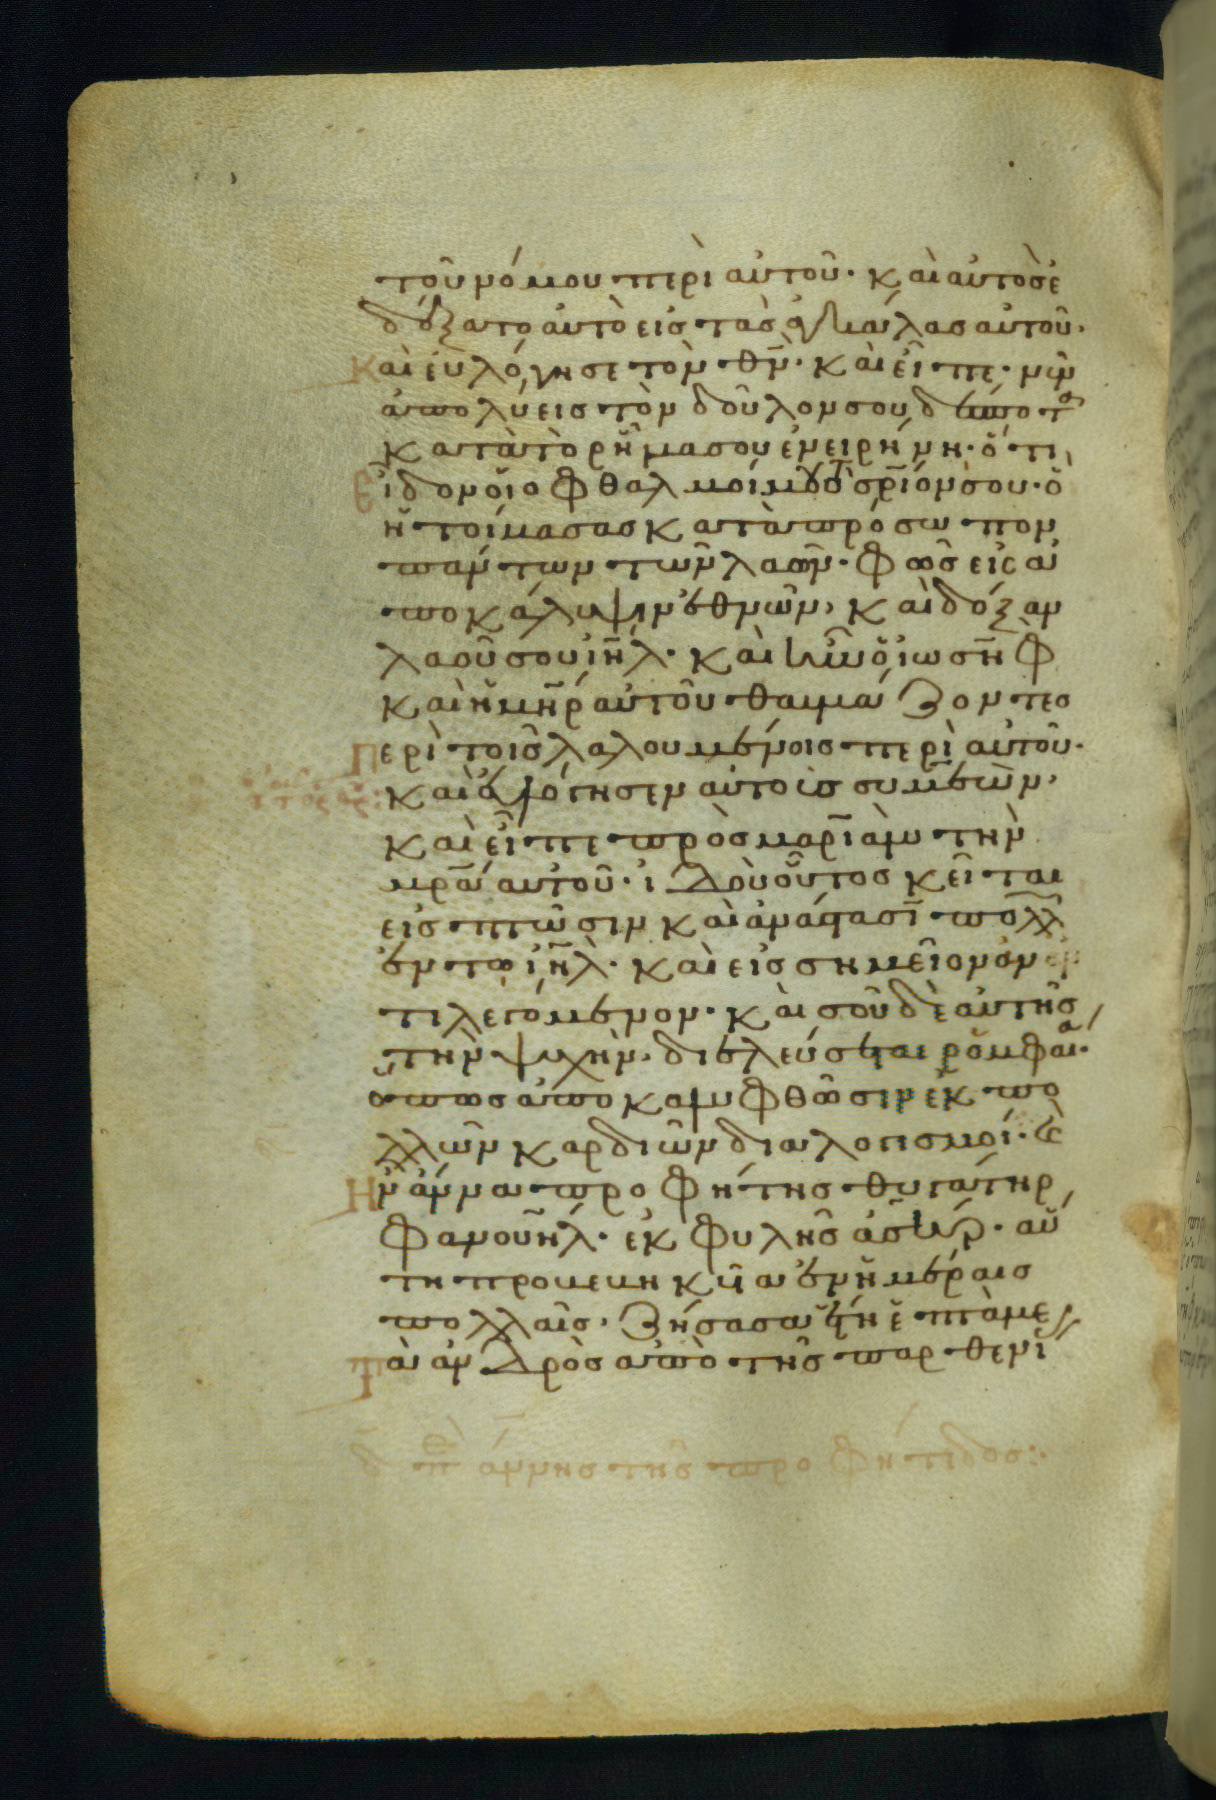 τοῦ νόμου περὶ αὐτοῦ· καὶ αὐτὸς ἐ
δέξατο αὐτὸ εἰς τὰς ἀγκάλας αὐτοῦ·
Καὶ εὐλόγησε τὸν θν̄· καὶ εἶπε· νῦν
ἀπολύεις τὸν δοῦλον σου δέσποτα
κατὰ τὸ ρῆμα σου ἐν εἰρήνη· ὅτι
Εἶδον οἱ ὀφθαλμοί μου τὸ σρ̄ιόν σου· ὃ
ἡτοίμασας κατὰ πρόσωπον
πάντων τῶν λαῶν· φῶς εἰς ἀ
ποκάλυψιν ἐθνῶν, καὶ δόξαν
λαοῦ σου ιη̄λ· καὶ ἦν ὁ ἰωσὴφ
καὶ ἡ μη̄ρ αὐτοῦ θαυμάζοντες
Περὶ τοῖς λαλουμένοις περὶ αὐτοῦ·
καὶ εὐλόγησεν αὐτοὺς συμεὼν,
καὶ εἶπε πρὸς μαριὰμ τὴν
μρ̄α αὐτοῦ· ἰδοὺ οὗτος κεῖται
εἰς πτῶσιν καὶ ἀνάστασῑ πολλῶ
ἐν τῶ ιη̄λ· καὶ εἰς σημεῖον ἀν
τιλεγόμενον· καὶ σοῦ δὲ αὐτῆς
τὴν ψυχὴν, διελεύσεται ρομφαία·
ὅπως ἀποκαλυφθῶσιν ἐκ πο
λλῶν καρδιῶν διαλογισμοί· καὶ
Ἦν ἄννα προφήτης θυγάτηρ
φανουήλ· ἐκ φυλῆς ἀσήρ· αὕ
τη προβεβηκυῖα ἐν ἡμέραις
πολλαῖς, ζήσασα ἔτη ἑπτὰ με
Τὰ ἀνδρὸς ἀπὸ τῆς παρθενί
δ̄ πε ἄννης τῆς προφήτιδος:·